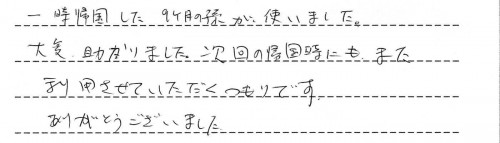 一時帰国した9ヶ月の孫が使いました。
大変助かりました。次回の帰国時にも、また
利用させていただくつもりです。
ありがとうございました